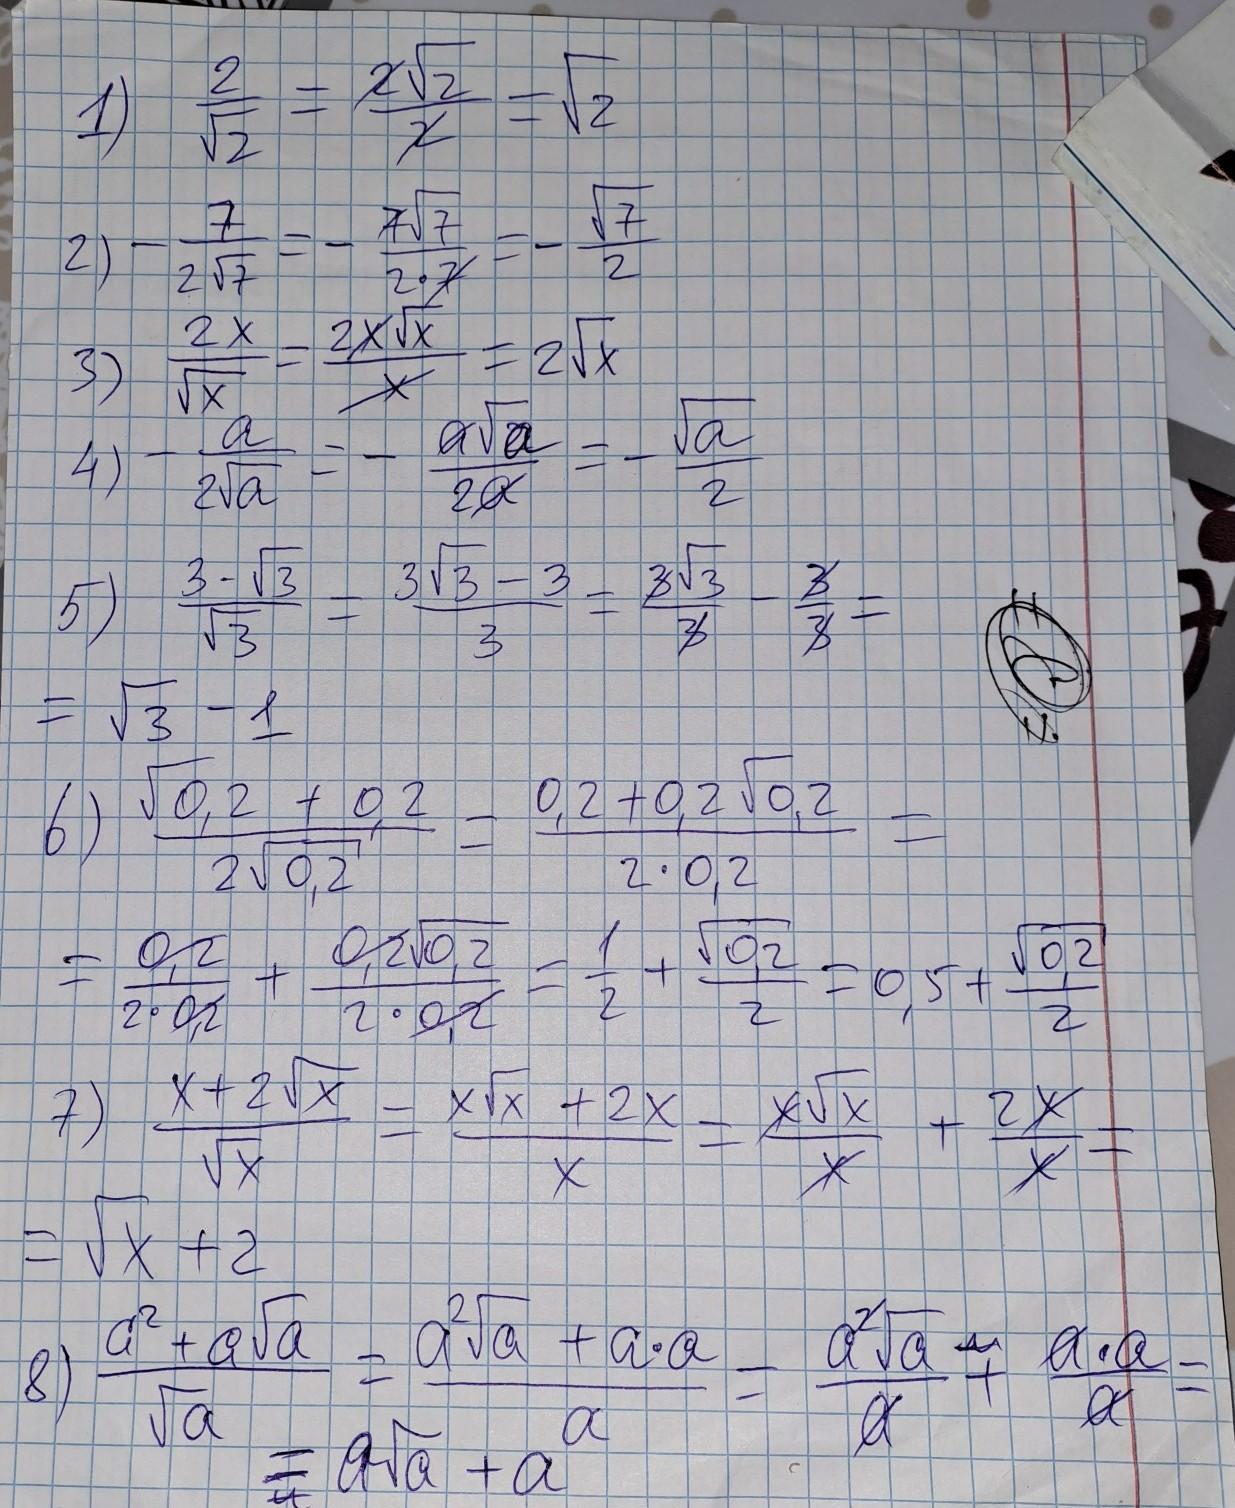 1) 2/√2 = 2√2/2 = √2
2) - 7/2√7 = - 7√7/2·7 = - √7/2
3) 2x/√x = 2x√x/x = 2√x
4) - a/2√a = - a√a/2a = - √a/2
5) 3-√3/√3 = 3√3-3/3 = 3√3/3 - 3/3 =
= √3 - 1
6) √0,2 + 0,2/2√0,2 = 0,2+0,2√0,2/2·0,2 =
= 0,2/2·0,2 + 0,2√0,2/2·0,2 = 1/2 + √0,2/2 = 0,5 + √0,2/2
7) x+2√x/√x = x√x + 2x/x = x√x/x + 2x/x =
= √x + 2
8) a²+a√a/√a = a²√a + a·a/a = a²√a/a + a·a/a =
= a√a + a